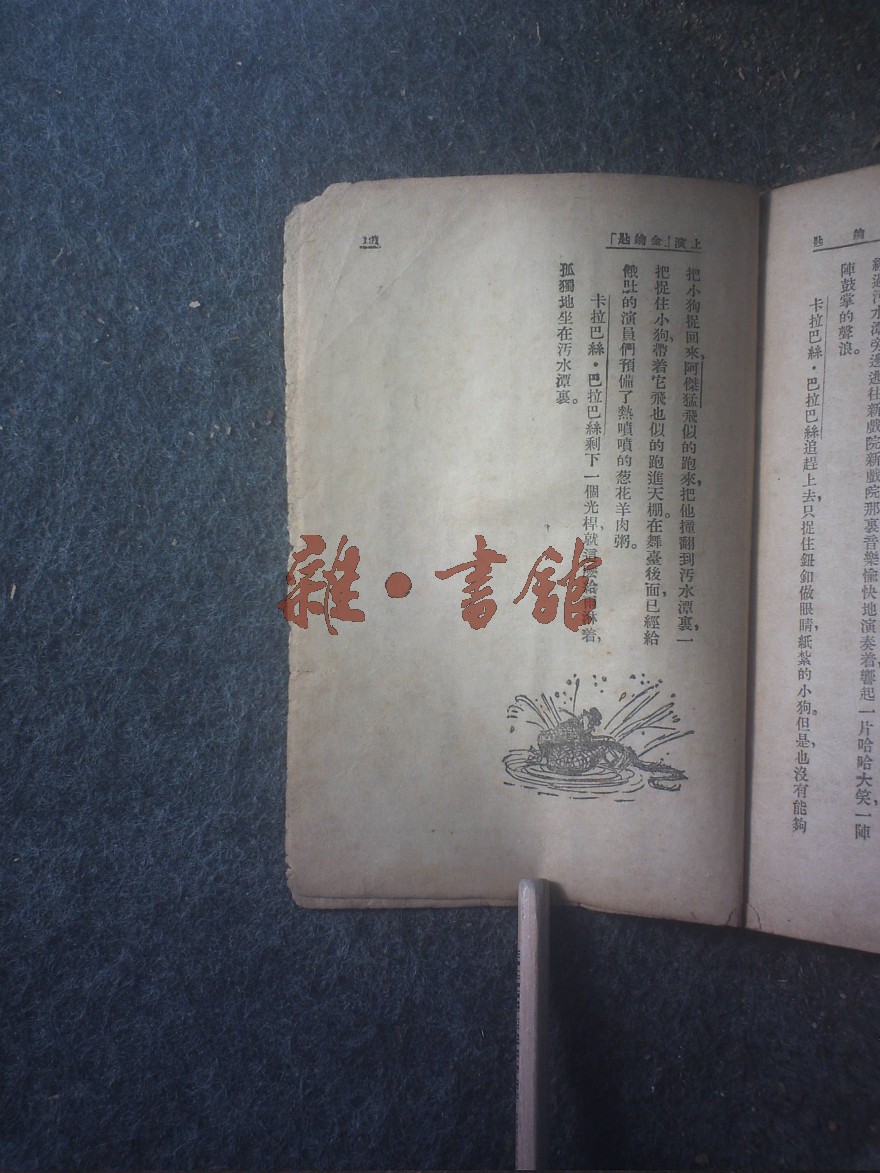 鑰匙
經過污水潭旁邊逃往新戲院新戲院那裏音樂愉快地演奏着，響起一片哈哈大笑，一陣
陣鼓掌的聲浪。
卡拉巴絲・巴拉巴絲追趕上去，只捉住鈕釦做眼睛，紙紮的小狗。但是，也沒有能夠
上演「金鑰匙」
把小狗捉回來，阿傑猛飛似的跑來，把他撞翻到污水潭裏，一
把捉住小狗，帶着它飛也似的跑進天棚。在舞臺後面，已經給
餓肚的演員們預備了熱噴噴的葱花羊肉粥。
卡拉巴絲・巴拉巴絲剩下一個光桿，就這麼給雨淋着，
孤獨地坐在污水潭裏。
雜・書館